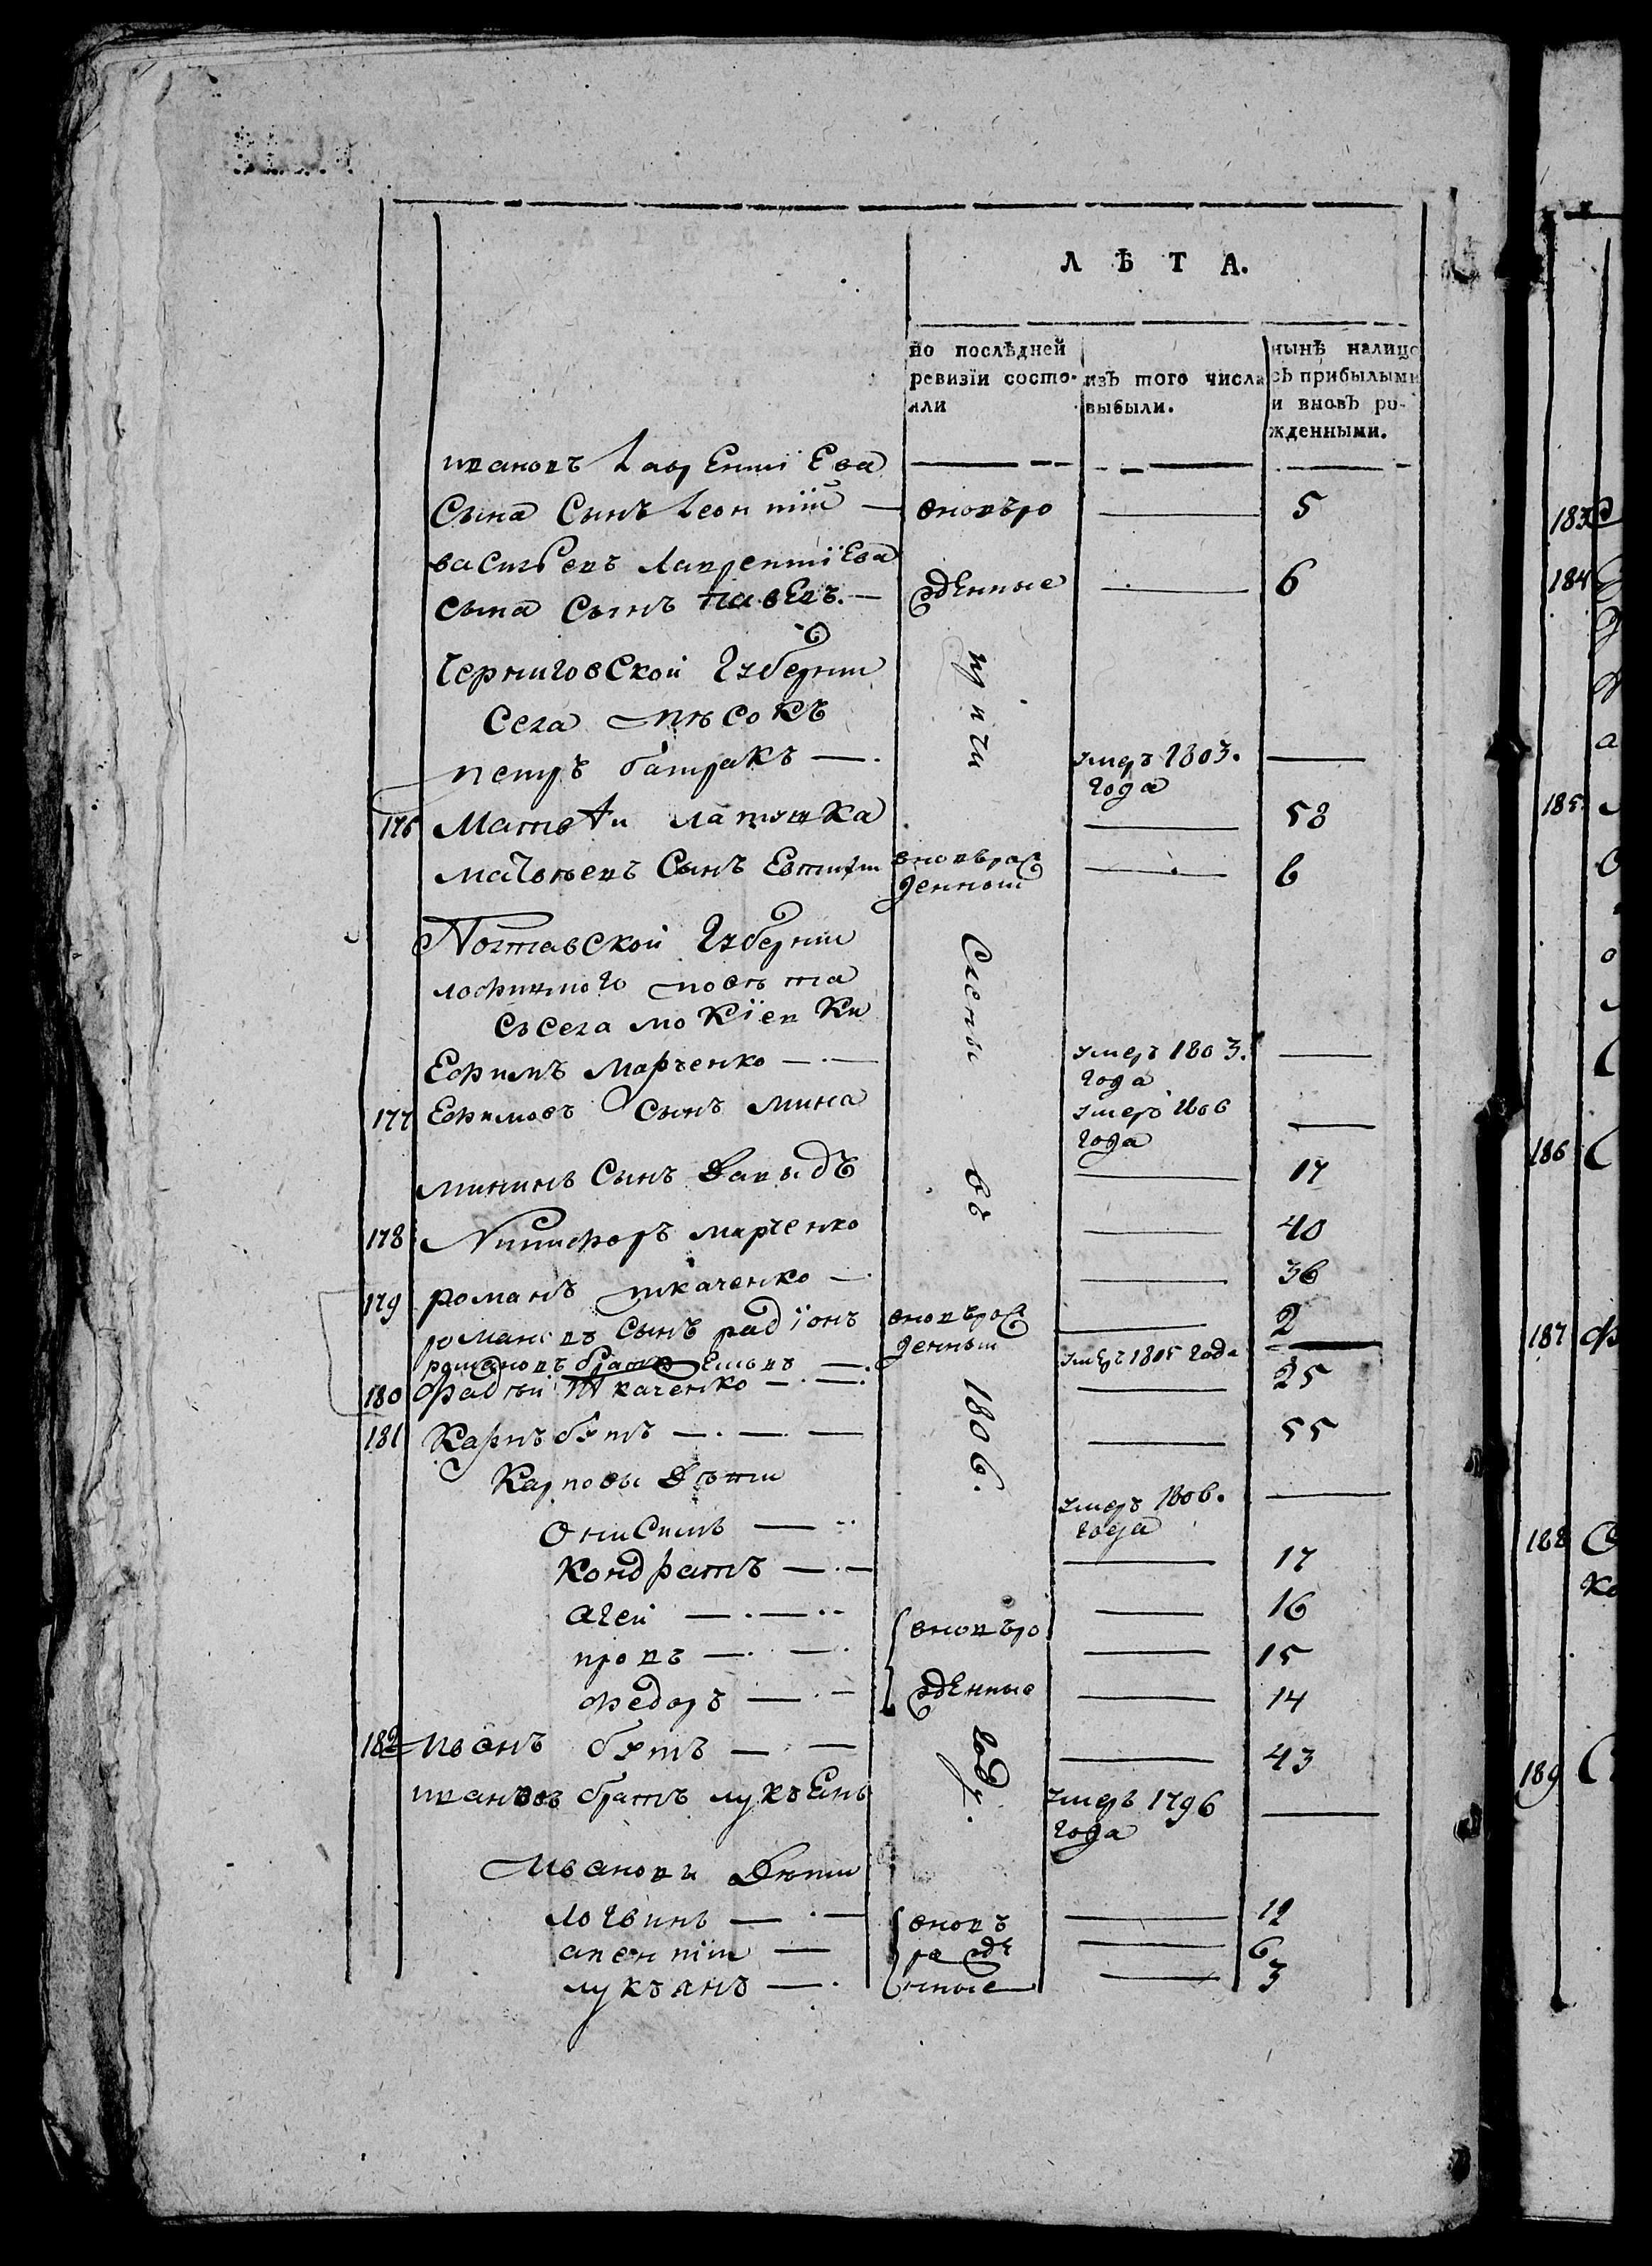 Л Ѣ Т А.
по послѣдней
ревизіи состо-
яли
изъ того числа
выбыли.
нынѣ налицо
съ прибылыми
и вновь ро-
жденными.
ивановъ Лаврентіева
сына сынъ Леонтій — вновъро — 5
васильевъ Лаврентіева
сына сынъ павелъ. — жденные — 6
Черниговской Губерніи
села пѣсокъ
петръ батракъ — умеръ 1803.
года —
176 Матвѣи латушка — 58
матвѣевъ сынъ Евтихіи вновърож
денныи — 6
Полтавской Губерніи
повѣта
съ села мокіевки
Ефимъ марченко — умеръ 1803.
года —
177 Ефимовъ сынъ мина умеръ 1806
года —
мининъ сынъ Давыдъ — 17
178 Никифоръ марченко — 40
179 романъ ткаченко — 36
романовъ сынъ радіонъ вновърож
денныи — 2
романовъ братъ умеръ 1805 года —
180 фадѣй Ткаченко — 25
181 Карпъ бутъ — 55
Карповы Дѣти
Онисимъ — умеръ 1806.
года —
Кондратъ — 17
агеи — 16
вновъро
провъ — 15
жденные
федоръ — 14
182 Иванъ бутъ — 43
ивановъ братъ лукъянъ умеръ 1796
года —
Ивановы Дѣти
логвинъ — вновъ — 12
авентіи — рожде — 6
лукъянъ — нные — 3
причи
слены
въ
1806.
году.
183
184
185
186
187
188
189